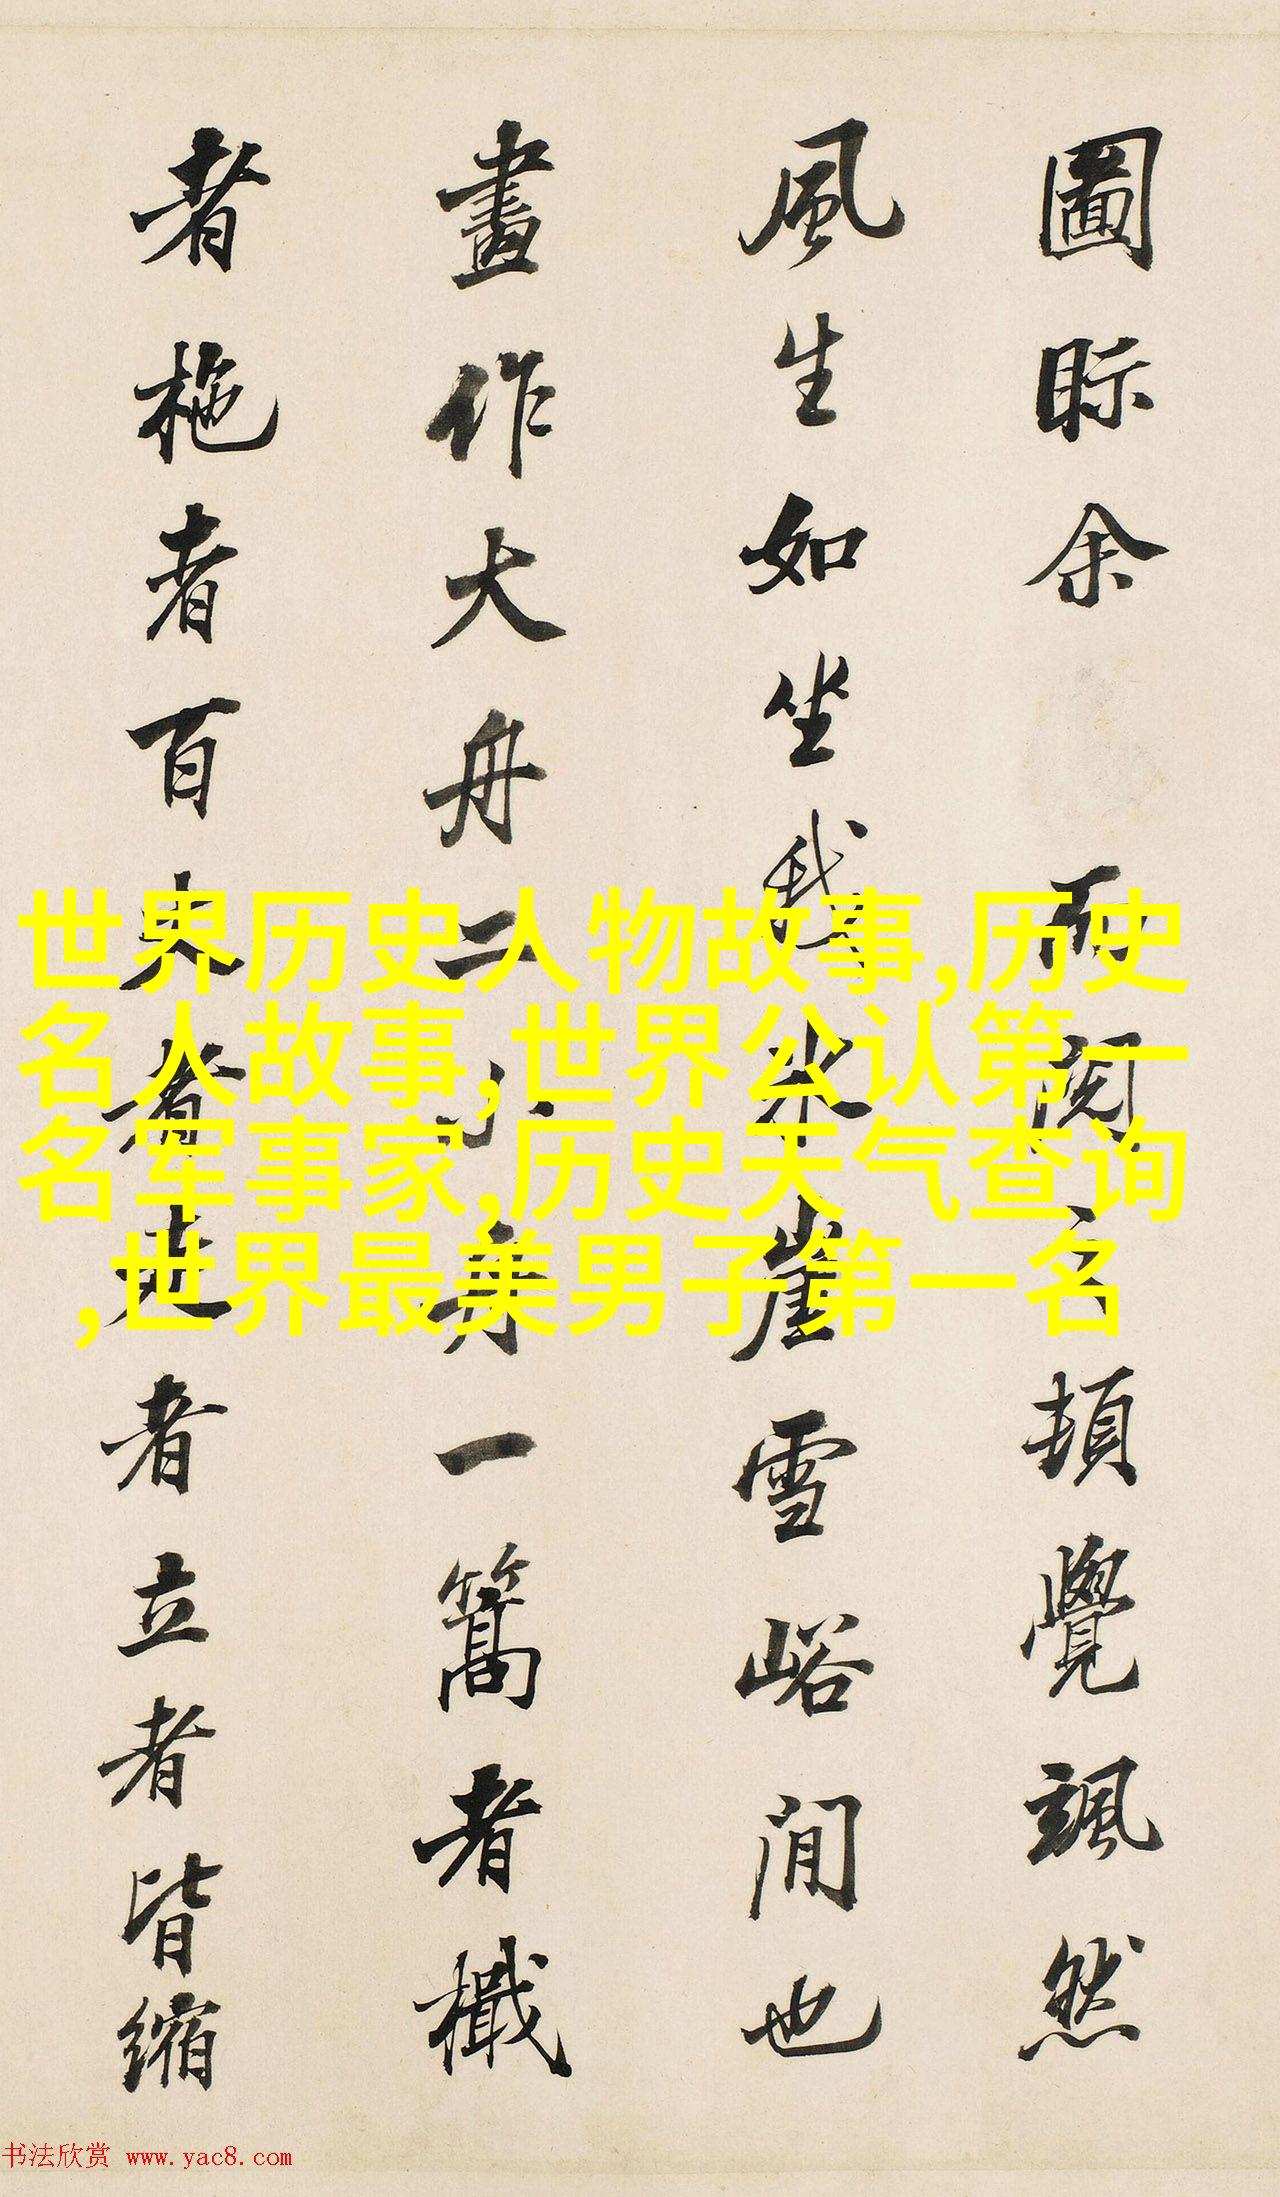 圖眎余而閱之頓覺颯然
風生如坐我冰崖雪峪間也
畫作大舟二小舟一篙者檝
者柂者百丈者走者立者皆縮
世界历史人物故事,历史
名人故事,世界公认第一
名军事家,历史天气查询
,世界最美男子第一名
书法欣赏 www.yac8.com